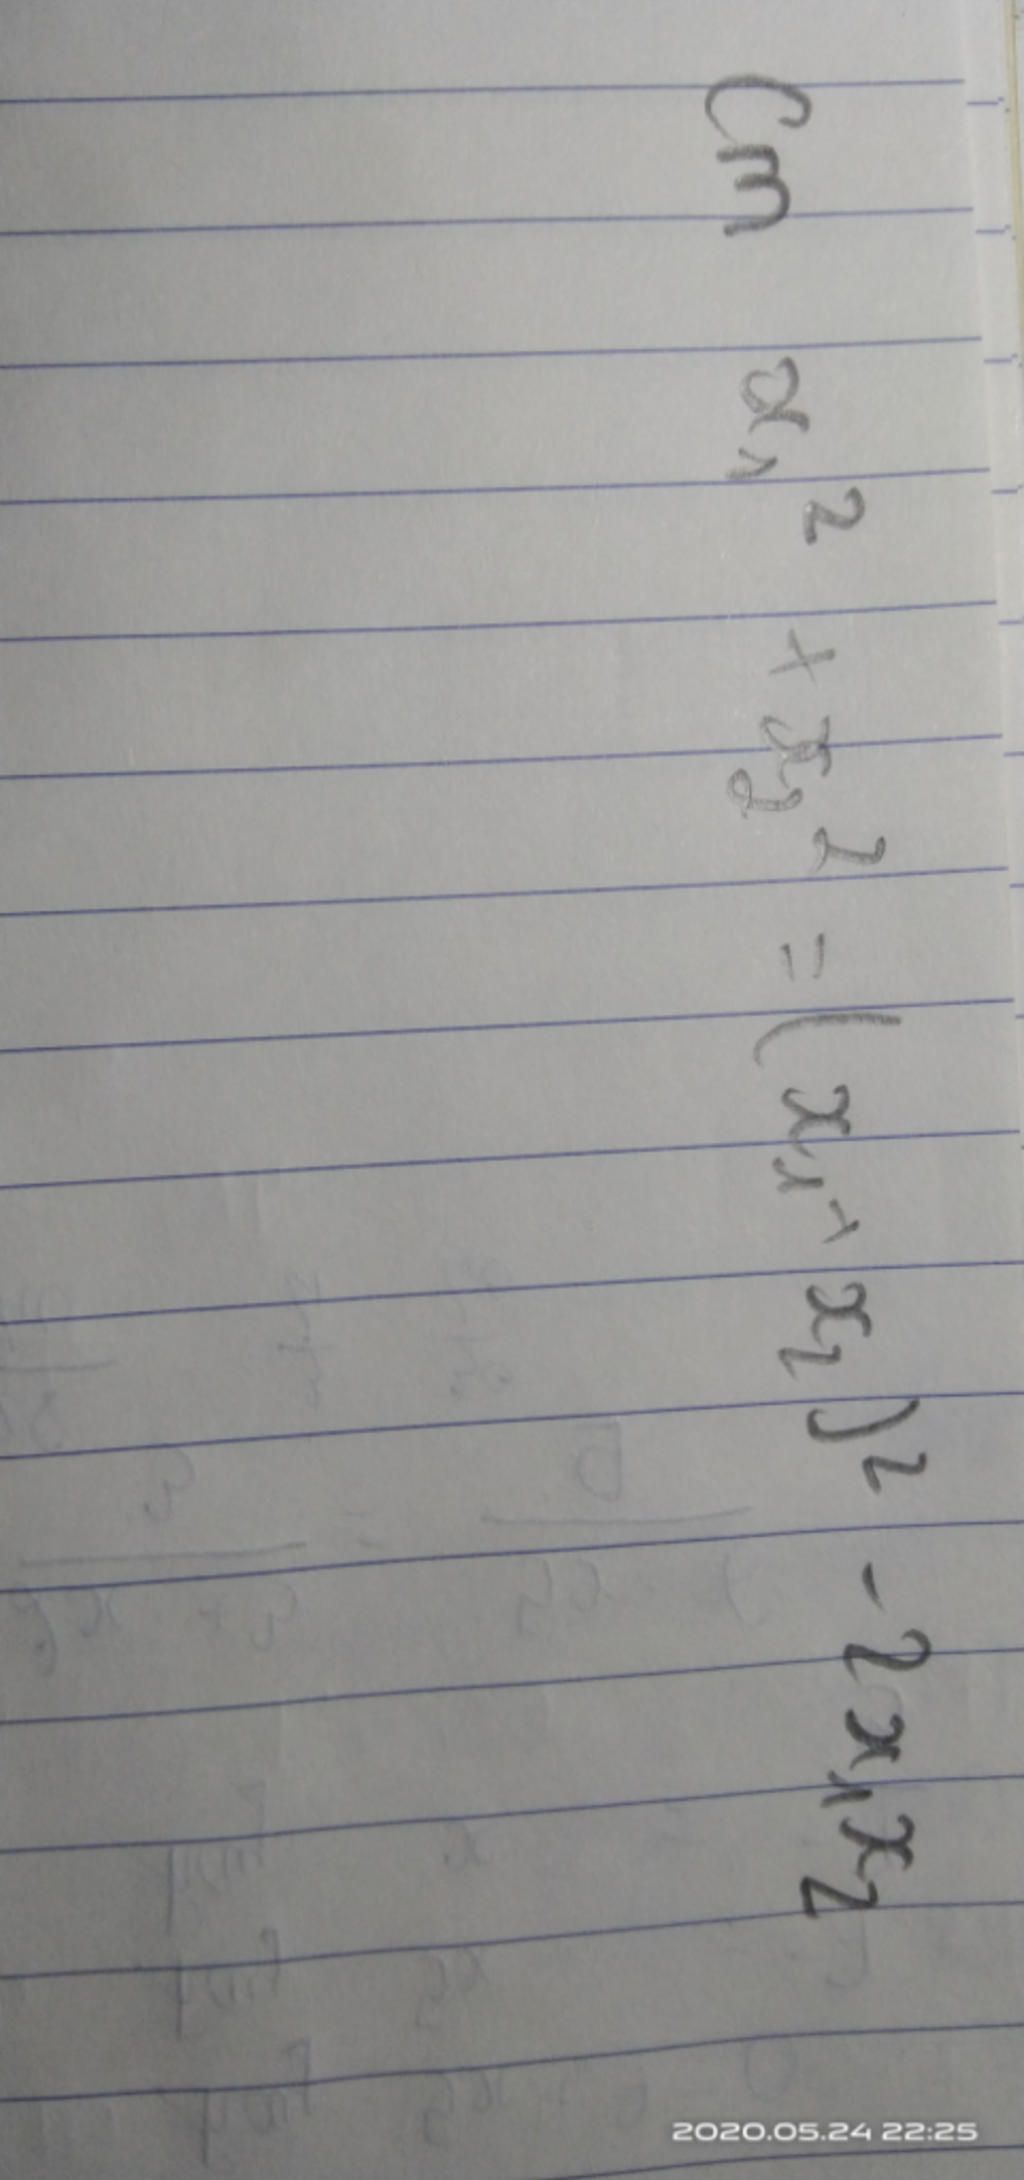 Cm x₁² + x₂² = (x₁ + x₂)² - 2x₁x₂
2020.05.24 22:25